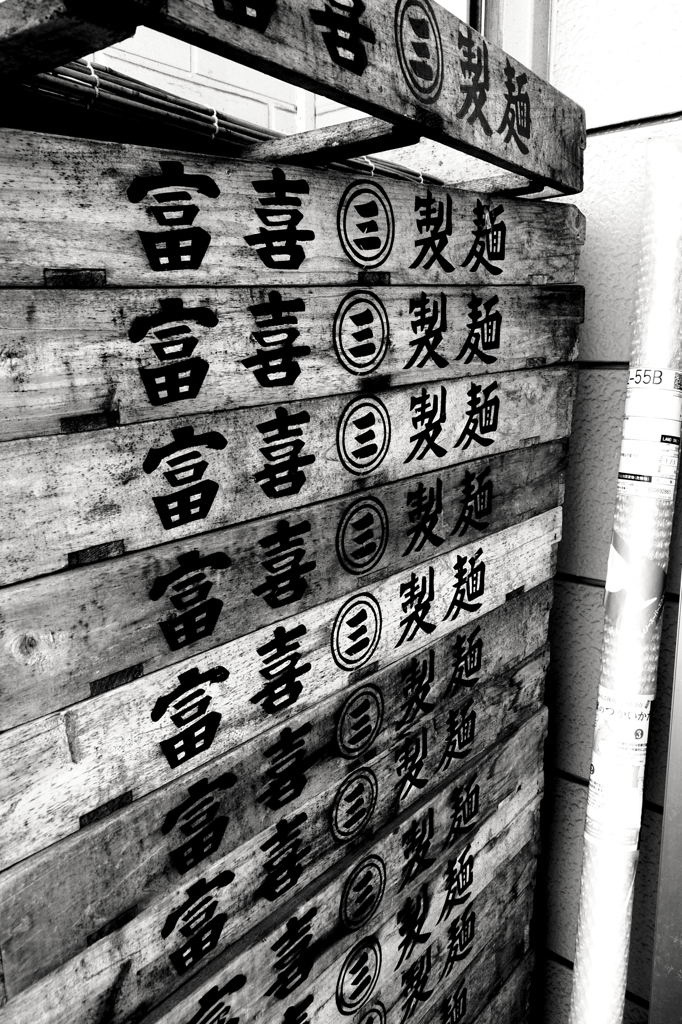 富喜㊂製麺
富喜㊂製麺
富喜㊂製麺
富喜㊂製麺
富喜㊂製麺
富喜㊂製麺
富喜㊂製麺
富喜㊂製麺
富喜㊂製麺
喜㊂製麺
-55B